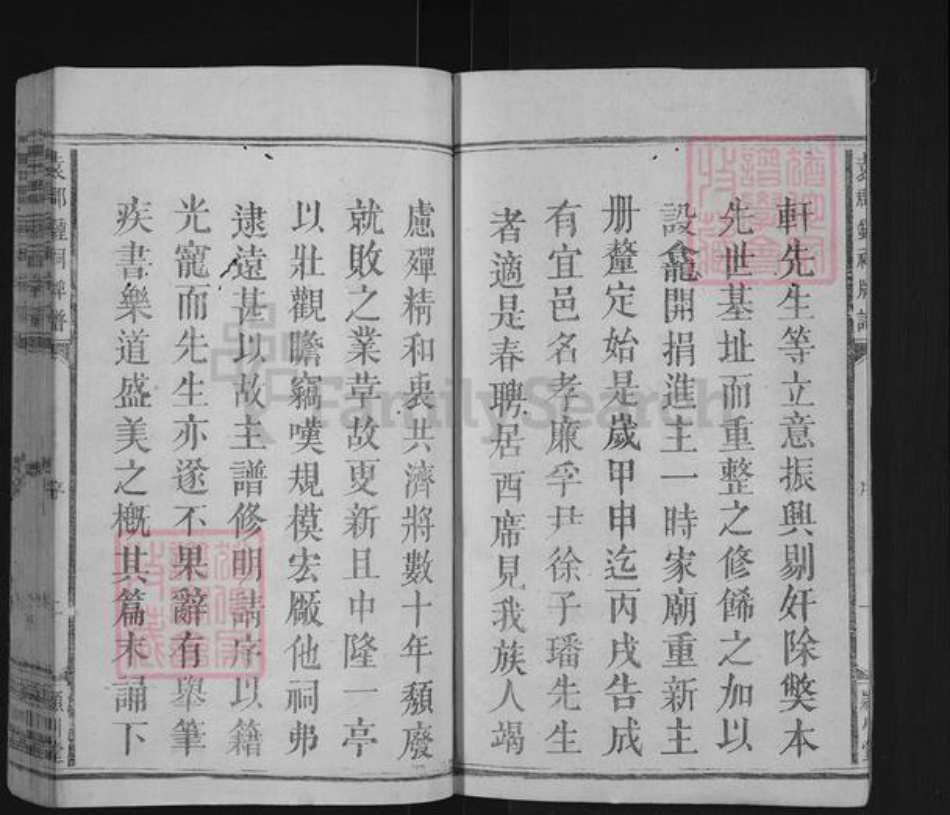 軒先生等立意振興剔奸除獘本
先世基址而重整之修餙之加以
設龕開捐進主一時家廟重新主
册釐定始是歲甲申迄丙戌告成
有宜邑名孝廉孚尹徐子璠先生
者適是春聘居西席見我族人竭
慮殫精和衷共濟將數十年頽廢
就敗之業革故更新且中隆一亭
以壯觀瞻竊嘆規模宏厰他祠弗
逮遠甚以故主譜修明請序以籍
光寵而先生亦遂不果辭有舉筆
疾書樂道盛美之槪其篇末誦下
袁郡鍾祠牌譜
序
潁川堂
FamilySearch